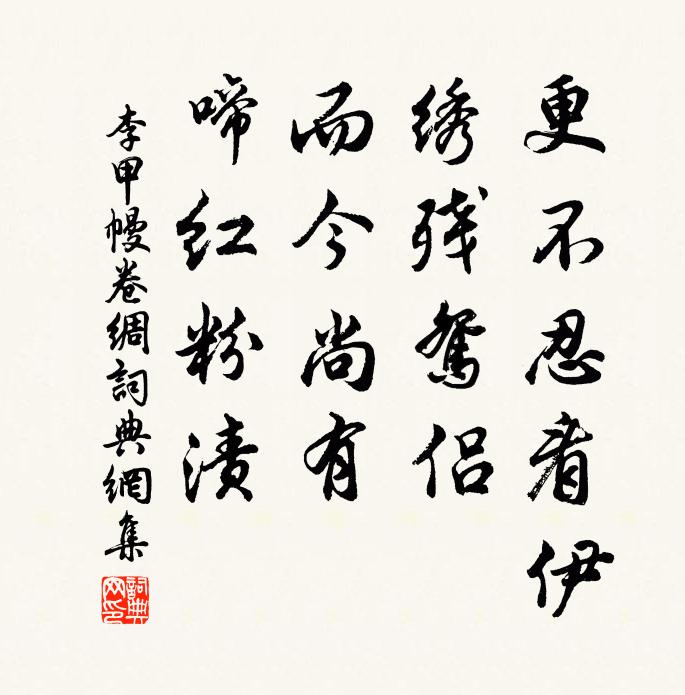 更不忍看伊
绣残鴛侣
而今尚有
啼红粉渍
李甲幔卷綢詞典網集
詞典
网印